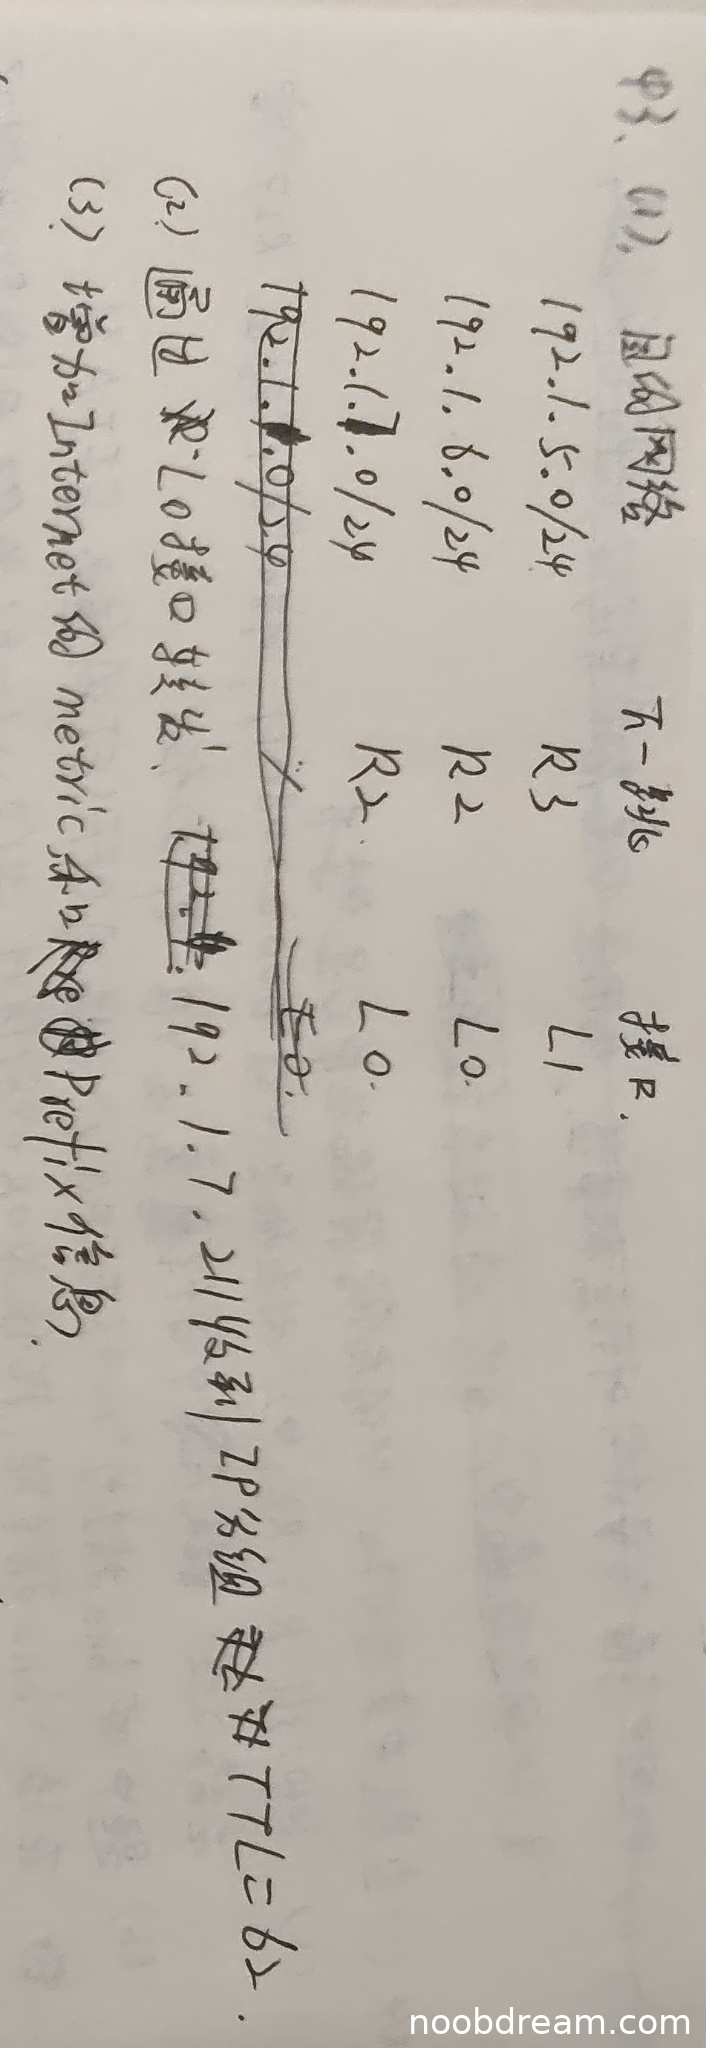 43、(1)、目的网络 下一跳 接口.
192.1.5.0/24 R3 L1
192.1.6.0/24 R2 L0.
192.1.7.0/24 R2. L0.
(2) 通过 L0接口转发. 192.1.7.211收到IP分组 TTL=62.
(3) 增加Internet的 metric和 Prefix信息.
noobdream.com